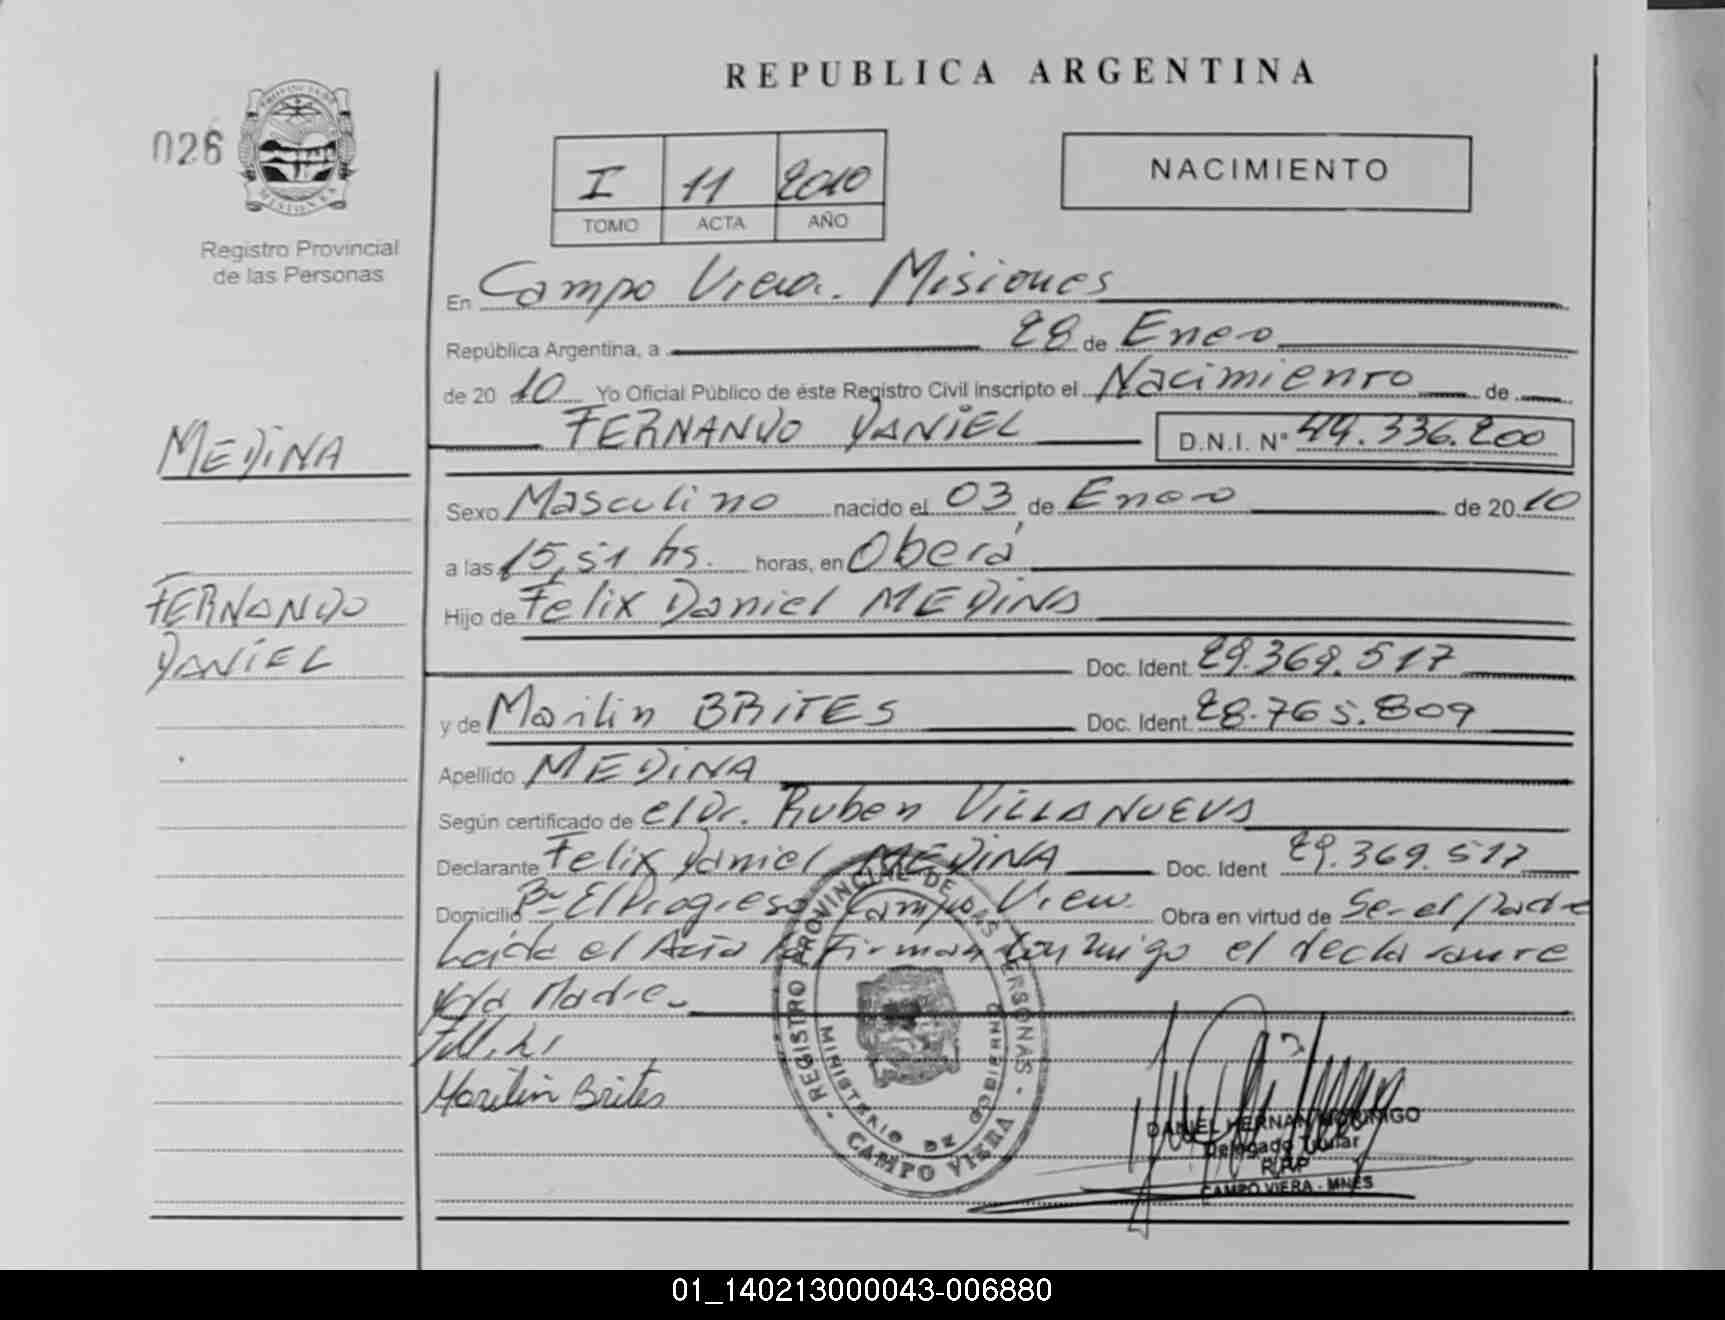 REPUBLICA ARGENTINA
026
PROVINCIA DE
MISIONES
Registro Provincial
de las Personas
I 11 2010
TOMO ACTA AÑO
NACIMIENTO
En Campo Viera. Misiones
República Argentina, a 28 de Enero
de 2010 Yo Oficial Público de éste Registro Civil inscripto el Nacimiento de
FERNANDO DANIEL D.N.I. Nº 49.336.200
MEDINA
Sexo Masculino nacido el 03 de Enero de 2010
a las 15,51 hs. horas, en Oberá
FERNANDO
DANIEL
Hijo de Felix Daniel MEDINA
Doc. Ident. 29.369.517
y de Marilin BRITES Doc. Ident. 28.765.809
Apellido MEDINA
Según certificado de el Dr. Ruben VILLANUEVA
Declarante Felix Daniel MEDINA Doc. Ident 29.369.517
Domicilio Bº El Progreso Campo Viera Obra en virtud de Ser el Padre
Leída el Acta la Firman Conmigo el declarante
y la Madre.
Marilin Brites
REGISTRO PROVINCIAL DE LAS PERSONAS - CAMPO VIERA -
MINISTERIO DE GOBIERNO
DANIEL HERNAN MORINIGO
Delegado Titular
R.P.P
CAMPO VIERA - MNES
01_140213000043-006880